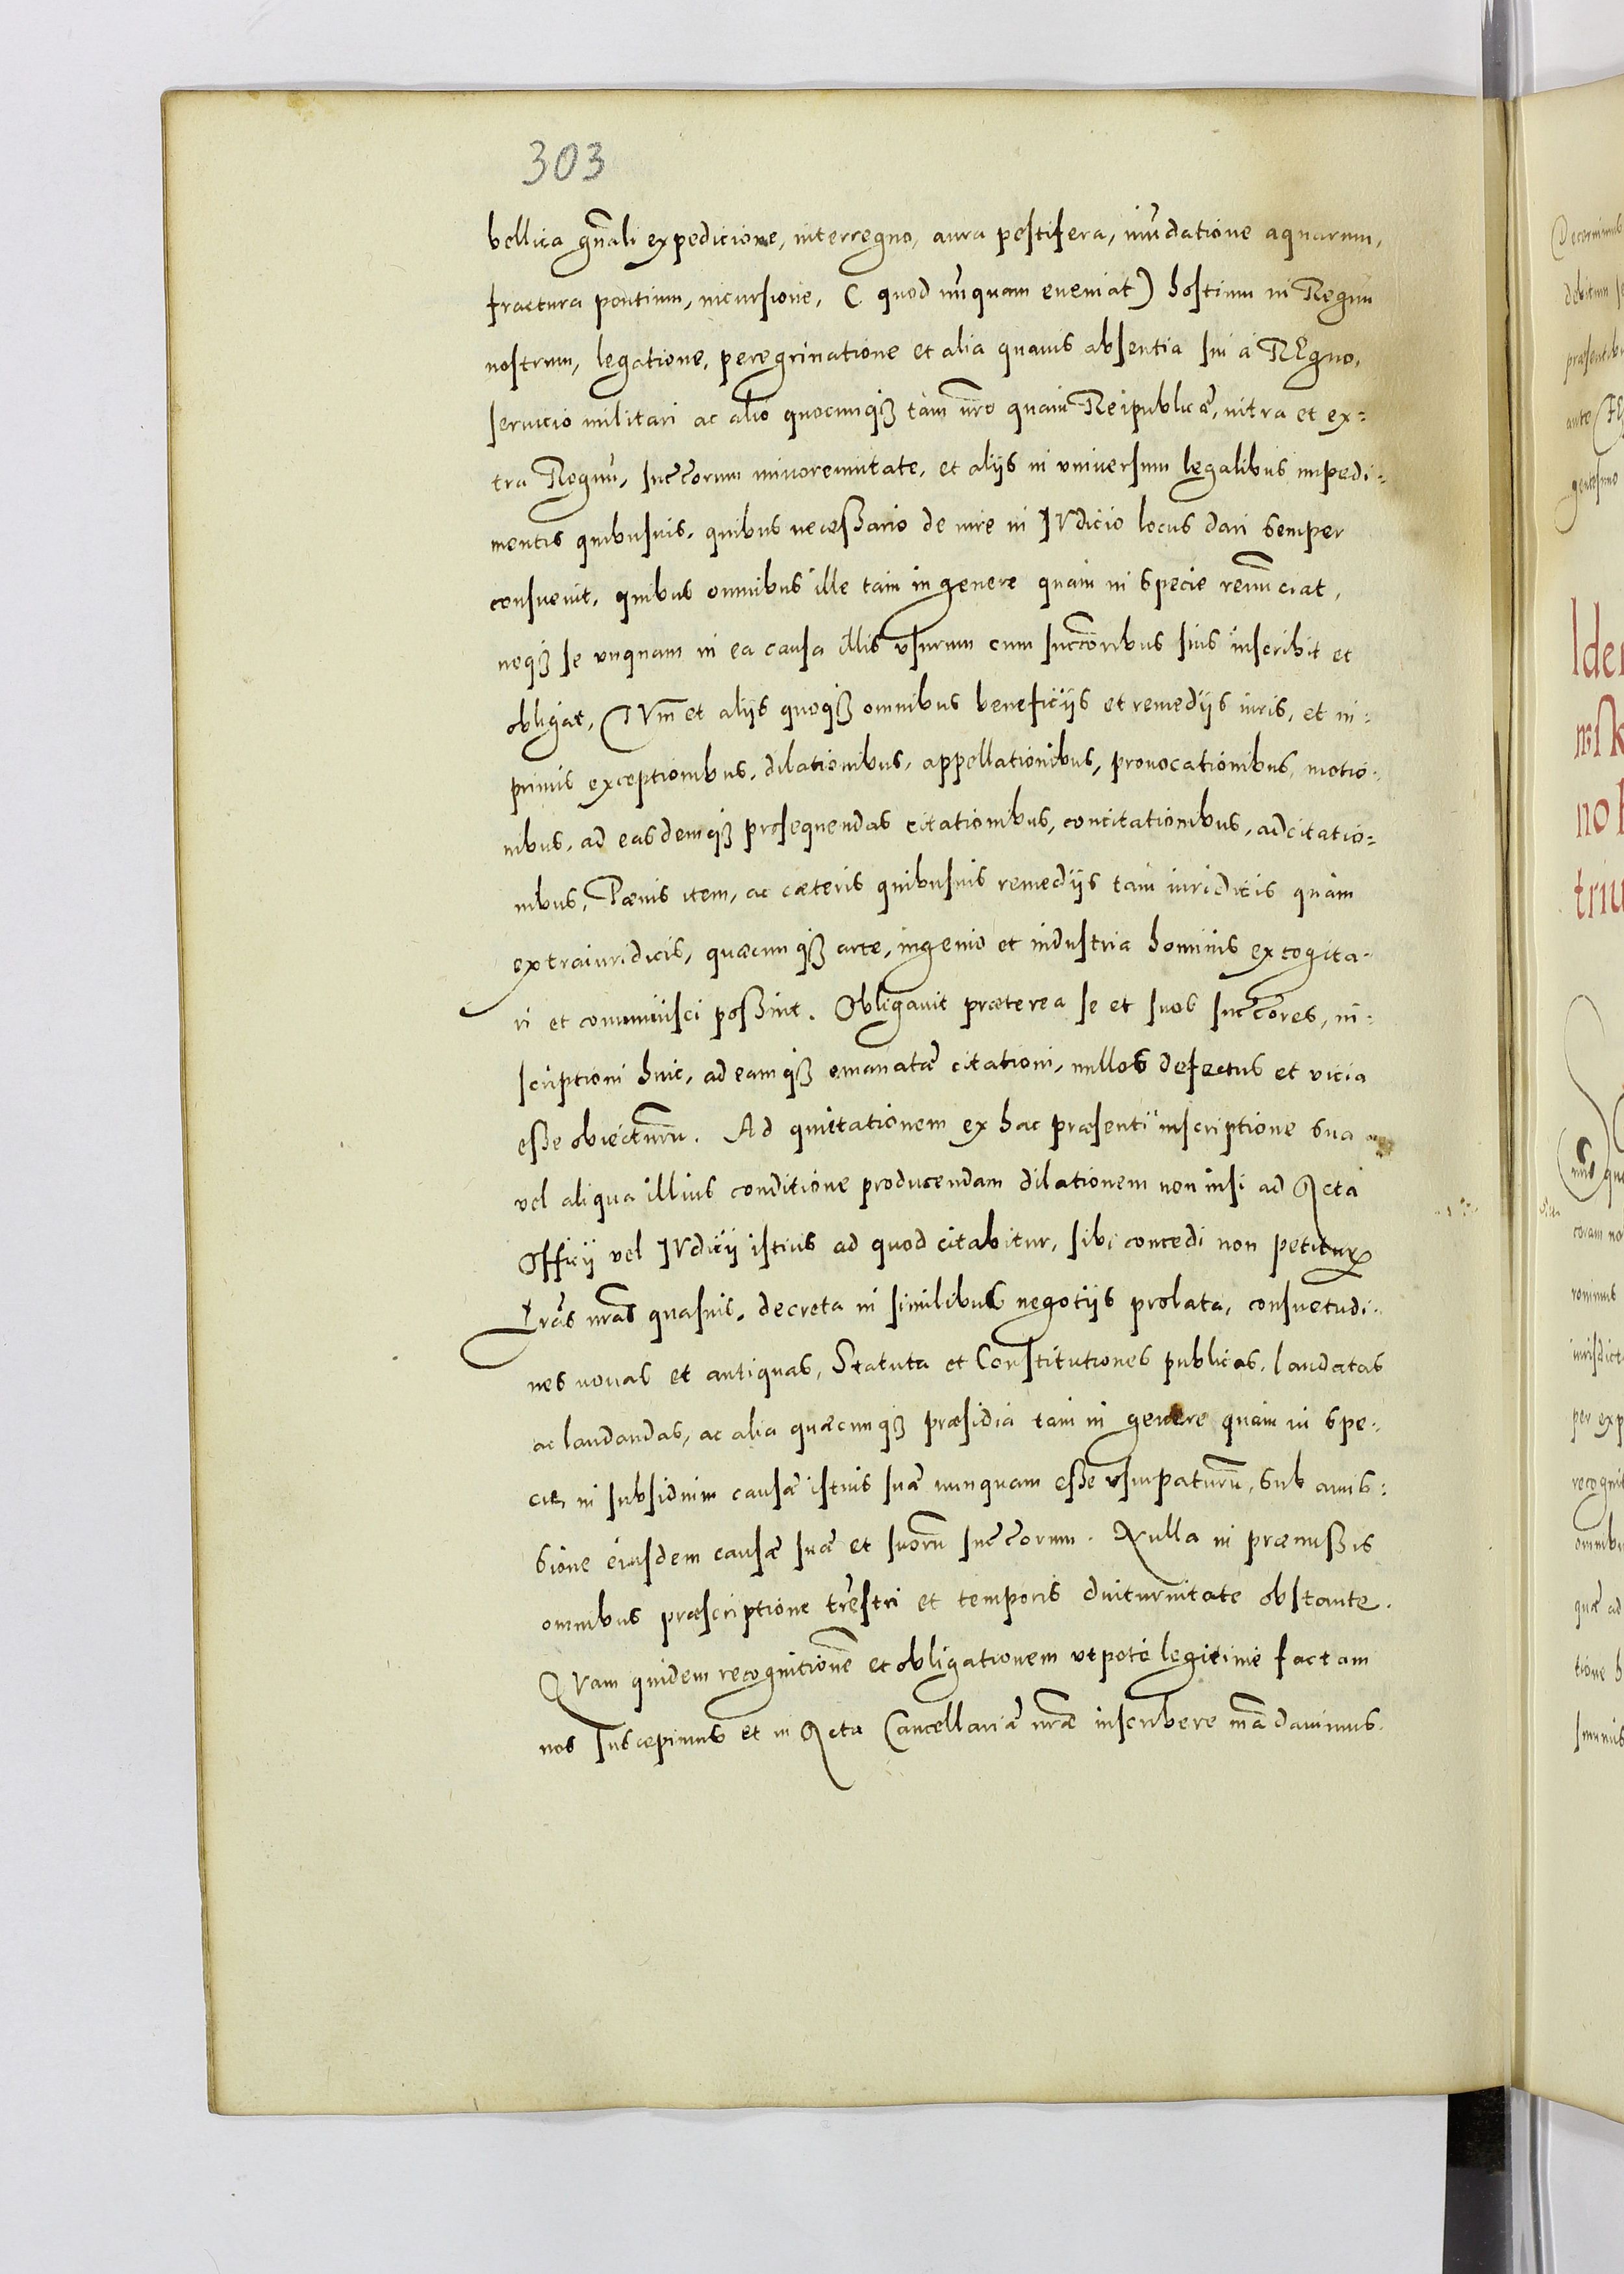 303
bellica gñali expedicione, interregno, aura pestifera, inũdatione aquarum,
fractura pontium, incursione, ( quod nũquam eveniat) hostium in Regnũ
nostrum, legatione, peregrinatione et alia quauis absentia sui à REgno,
seruicio militari ac alio quocunqȝ tàm nr̃o quàm Reipublicæ, intra et ex=
tra Regnũ, succ̃orum minorennitate, et alijs in vniuersum legalibus impedi=
mentis quibusuis, quibus necessario de iure in IVdicio locus dari semper
consuevit, quibus omnibus ille tàm in genere quàm in specie renũciat,
neqȝ se unquam in ea causa illis vsurum cum succ̃oribus suis inscribit et
obligat, TVm et alijs quoqȝ omnibus beneficijs et remedijs iuris, et in=
primis exceptionibus, dilationibus, appellationibus, prouocationibus, motio=
nibus, ad easdemqȝ prosequendas citationibus, concitationibus, adcitatio=
nibus, Pænis item, ac cæteris quibusuis remedijs tàm iuridicis quàm
extraiuridicis, quæcunqȝ arte, ingenio et industria hominis excogita=
ri et comminisci possint. Obligauit præterea se et suos succ̃ores, in=
scriptioni huic, ad eamqȝ emanatæ citationi, nullos defectus et vicia
esse obiecturũ. Ad quietationem ex hac præsenti inscriptione sua
vel aliqua illius conditione producendam dilationem non nisi ad Acta
Officij vel IVdicij istius ad quod citabitur, sibi concedi non petiturũ
Lr̃as nr̃as quasuis, decreta in similibus negotijs prolata, consuetudi=
nes nouas et antiquas, Statuta et Constitutiones publicas, laudatas
ac laudandas, ac alia quæcunqȝ præsidia tàm in genere quàm in spe=
cie, in subsidium causæ istius suæ nunquam esse vsurpaturũ, sub amis=
sione eiusdem causæ suæ et suorũ succ̃orum. Nulla in præmissis
omnibus præscriptione tr̃estri et temporis diuturnitate obstante.
QVam quidem recognitionẽ et obligationem utpote legitimè factam
nos suscepimus et in Acta Cancellariæ nr̃æ inscribere mãdauimus.